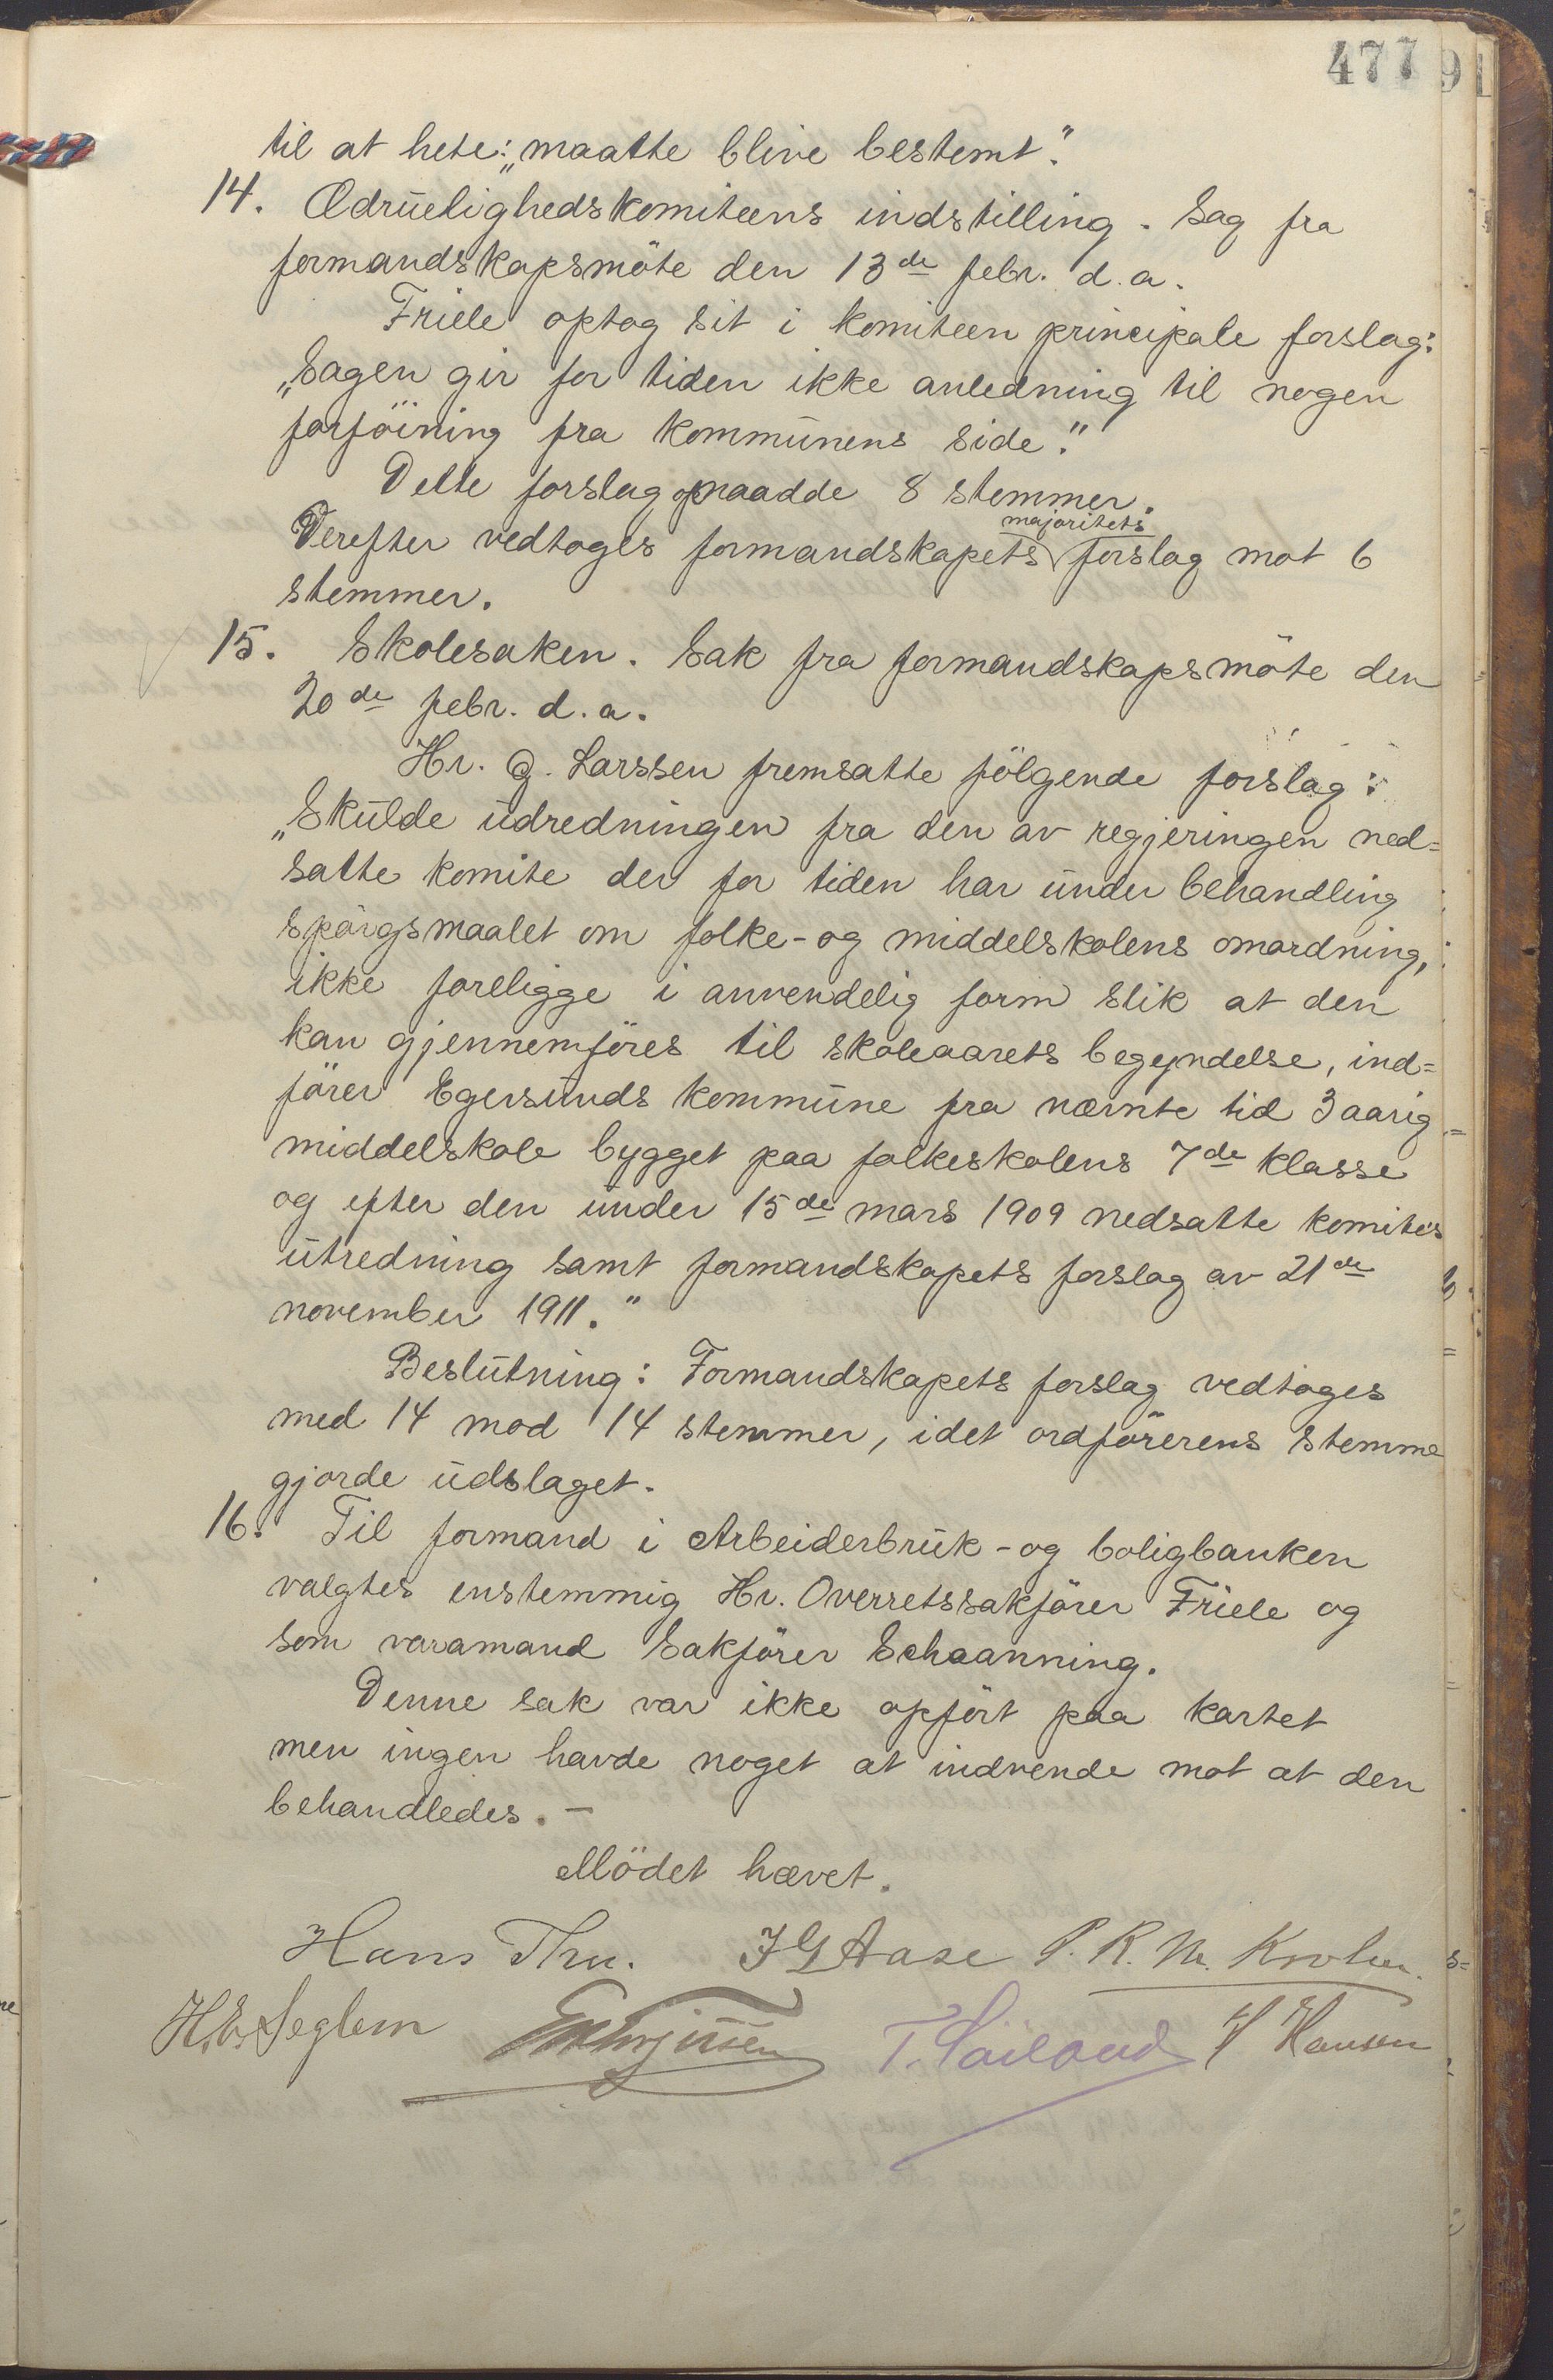 477
til at hete: „maatte blive bestemt."
14. Ædruelighedskomiteens indstilling. Sag fra
formandskapsmöte den 13de febr. d.a.
Friele optog sit i komiteen principale forslag:
„Sagen gir for tiden ikke anledning til nogen
forföining fra kommunens side."
Dette forslag opnaadde 8 stemmer.
majoritets
Derefter vedtoges formandskapets forslag mot 6
stemmer.
15. Skolesaken. Sak fra formandskapsmöte den
20de febr. d.a.
Hr. G. Larssen fremsatte fölgende forslag:
„Skulde udredningen fra den av regjeringen ned=
satte komite der for tiden har under behandling
spörgsmaalet om folke- og middelskolens omordning,
ikke foreligge i anvendelig form slik at den
kan gjennemföres til skoleaarets begyndelse, ind=
förer Egersunds kommune fra nævnte tid 3 aarig
middelskole bygget paa folkeskolens 7de klasse
og efter den under 15de mars 1909 nedsatte komites
utredning samt formandskapets forslag av 21de
november 1911."
Beslutning: Formandskapets forslag vedtoges
med 14 mod 14 stemmer, idet ordförerens stemme
gjorde udslaget.
16. Til formand i Arbeiderbruk- og boligbanken
valgtes enstemmig Hr. Overretssakförer Friele og
som varamand Sakförer Schaanning.
Denne sak var ikke opfört paa kartet
men ingen havde noget at indvende mot at den
behandledes. -
Mödet hævet.
Hans Thu. J G Aase P. R. M. Krohn.
H. E. Seglem T. Höiland H Hansen